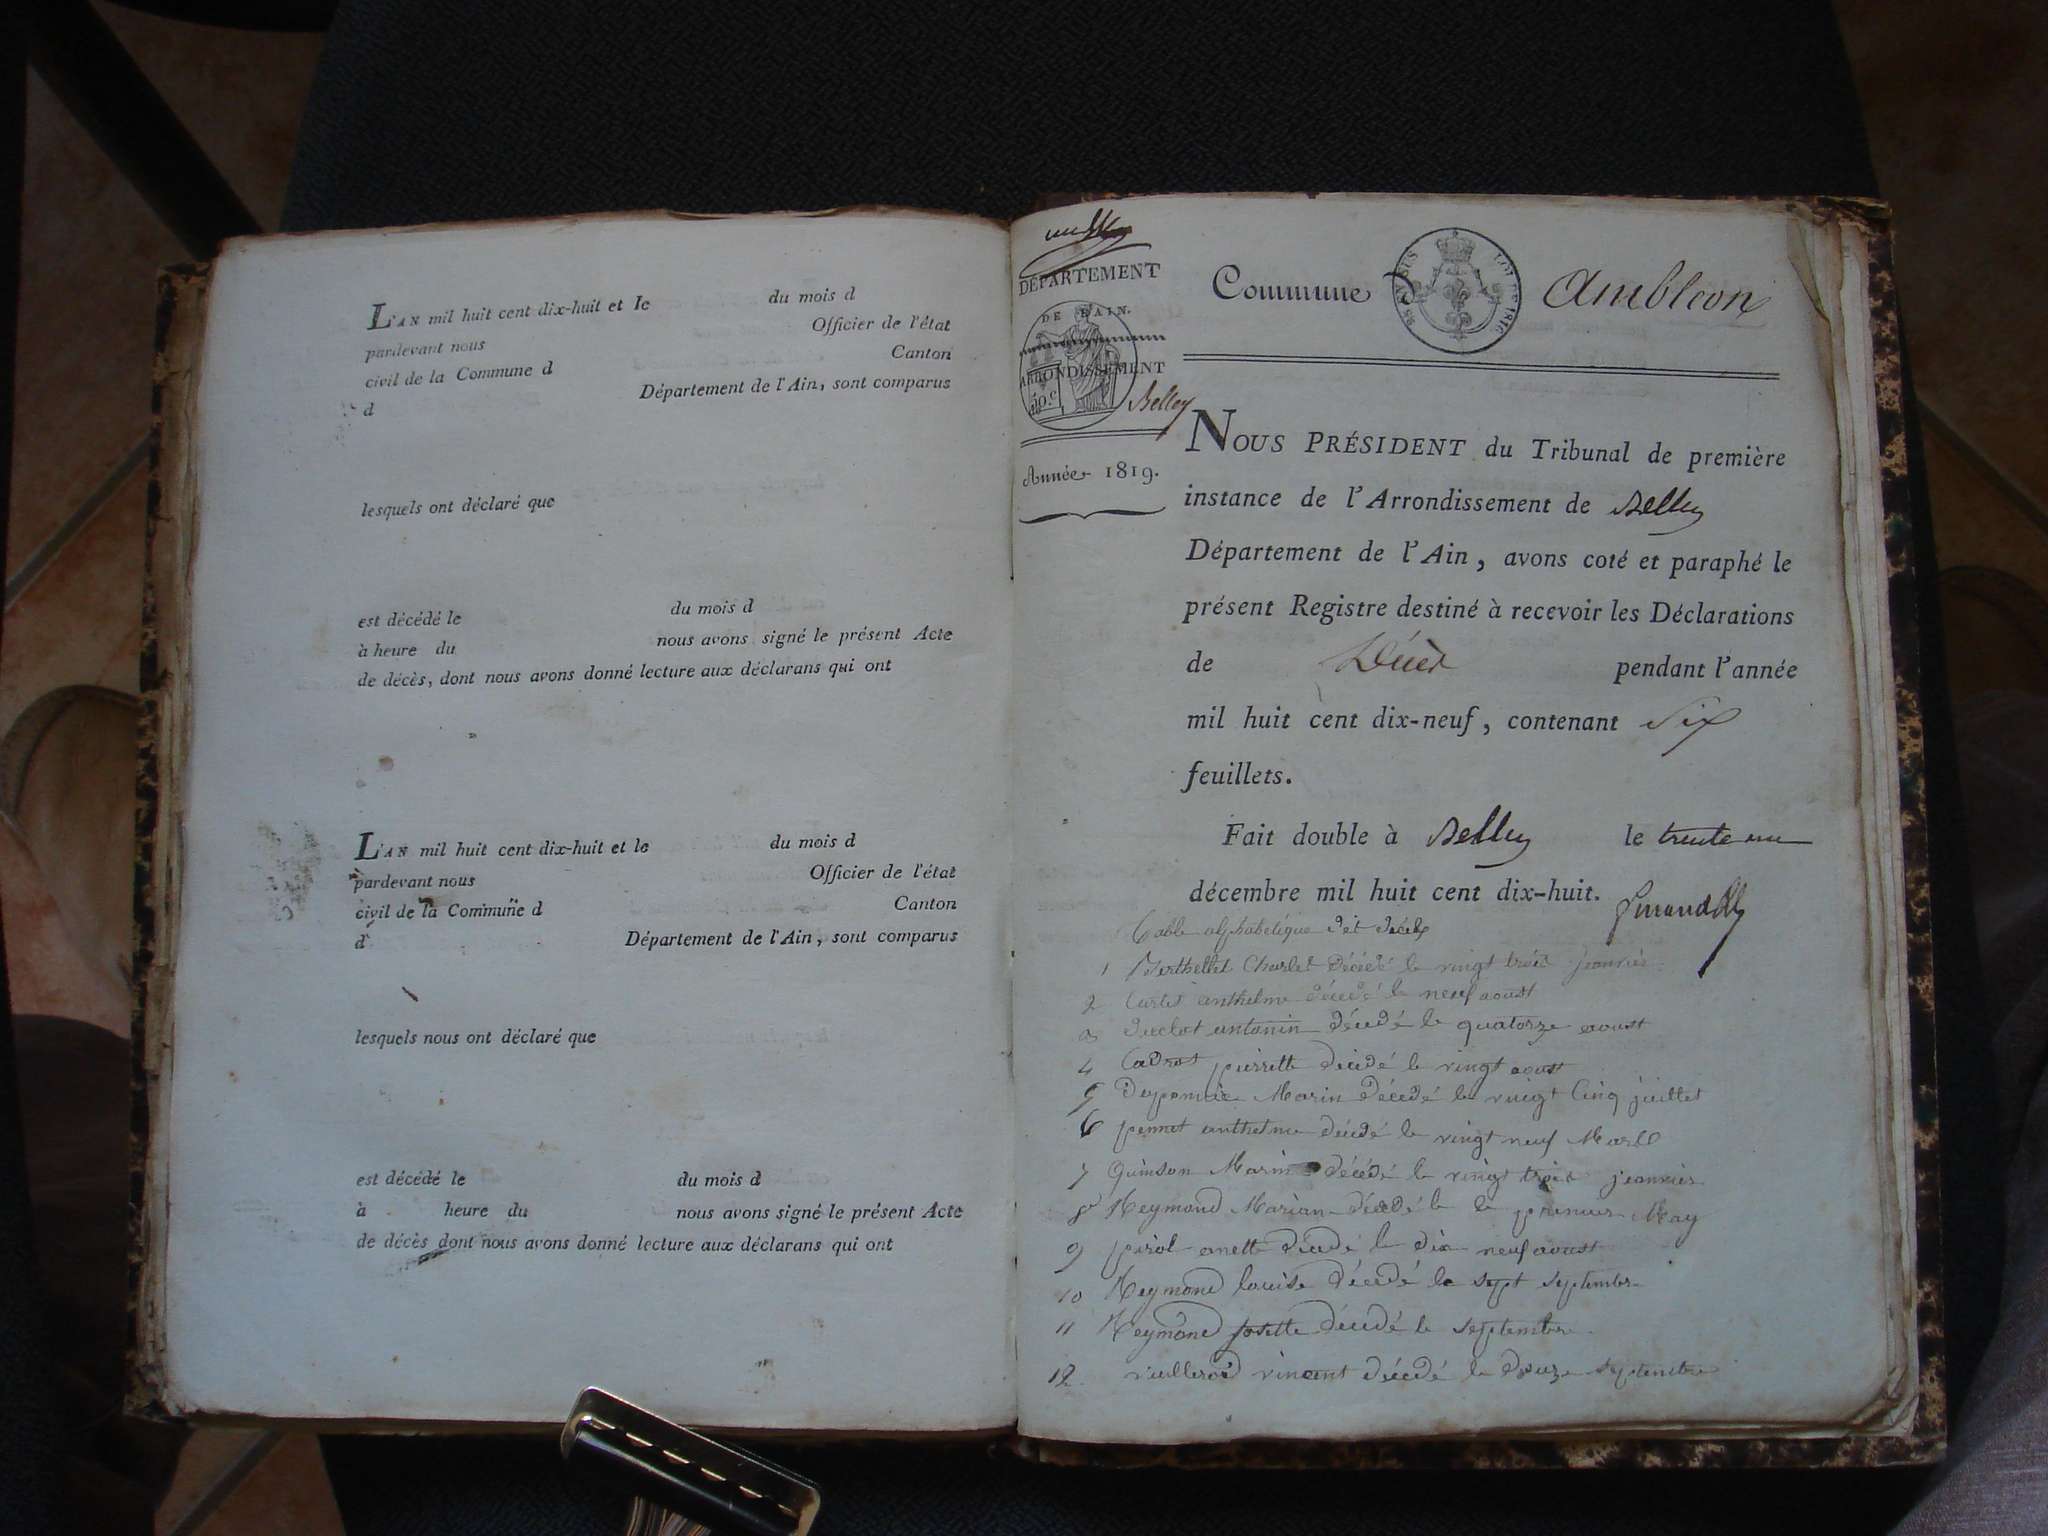 L'AN mil huit cent dix-huit et le du mois d
pardevant nous Officier de l'état
civil de la Commune d Canton
d Département de l'Ain, sont comparus
lesquels ont déclaré que
est décédé le du mois d
à heure du nous avons signé le présent Acte
de décès, dont nous avons donné lecture aux déclarans qui ont
L'AN mil huit cent dix-huit et le du mois d
pardevant nous Officier de l'état
civil de la Commune d Canton
d Département de l'Ain, sont comparus
lesquels nous ont déclaré que
est décédé le du mois d
à heure du nous avons signé le présent Acte
de décès dont nous avons donné lecture aux déclarans qui ont
DÉPARTEMENT
DE L'AIN.
ARRONDISSEMENT
Belley
Année 1819.
Commune d Ambléon
NOUS PRÉSIDENT du Tribunal de première
instance de l'Arrondissement de Belley
Département de l'Ain, avons coté et paraphé le
présent Registre destiné à recevoir les Déclarations
de Décès pendant l'année
mil huit cent dix-neuf, contenant Six
feuillets.
Fait double à Belley le trente un
décembre mil huit cent dix-huit.
Table alphabetique des décès
1 Berthellet Charles décédé le vingt trois janvier
2 anthelme décédé le neuf aoust
3 Duclot antonin décédé le quatorze aoust
4 pierrette décédé le vingt aoust
5 Marin décédé le vingt Cinq juillet
6 pennet anthelme décédé le vingt neuf Mars
7 Quinson Marin décédé le vingt trois janvier
8 Reymond Marian décédé le le premier May
9 anette décédé le dix neuf aoust
10 Reymond louise décédé le sept septembre
11 Reymond josette décédé le septembre
12 vincent décédé le douze septembre